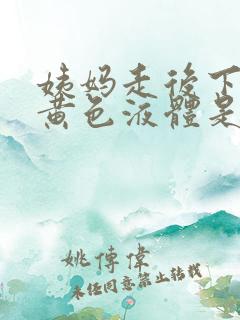 姨妈走後下
黄色液體是
姚傳偉
未经同意禁止转载